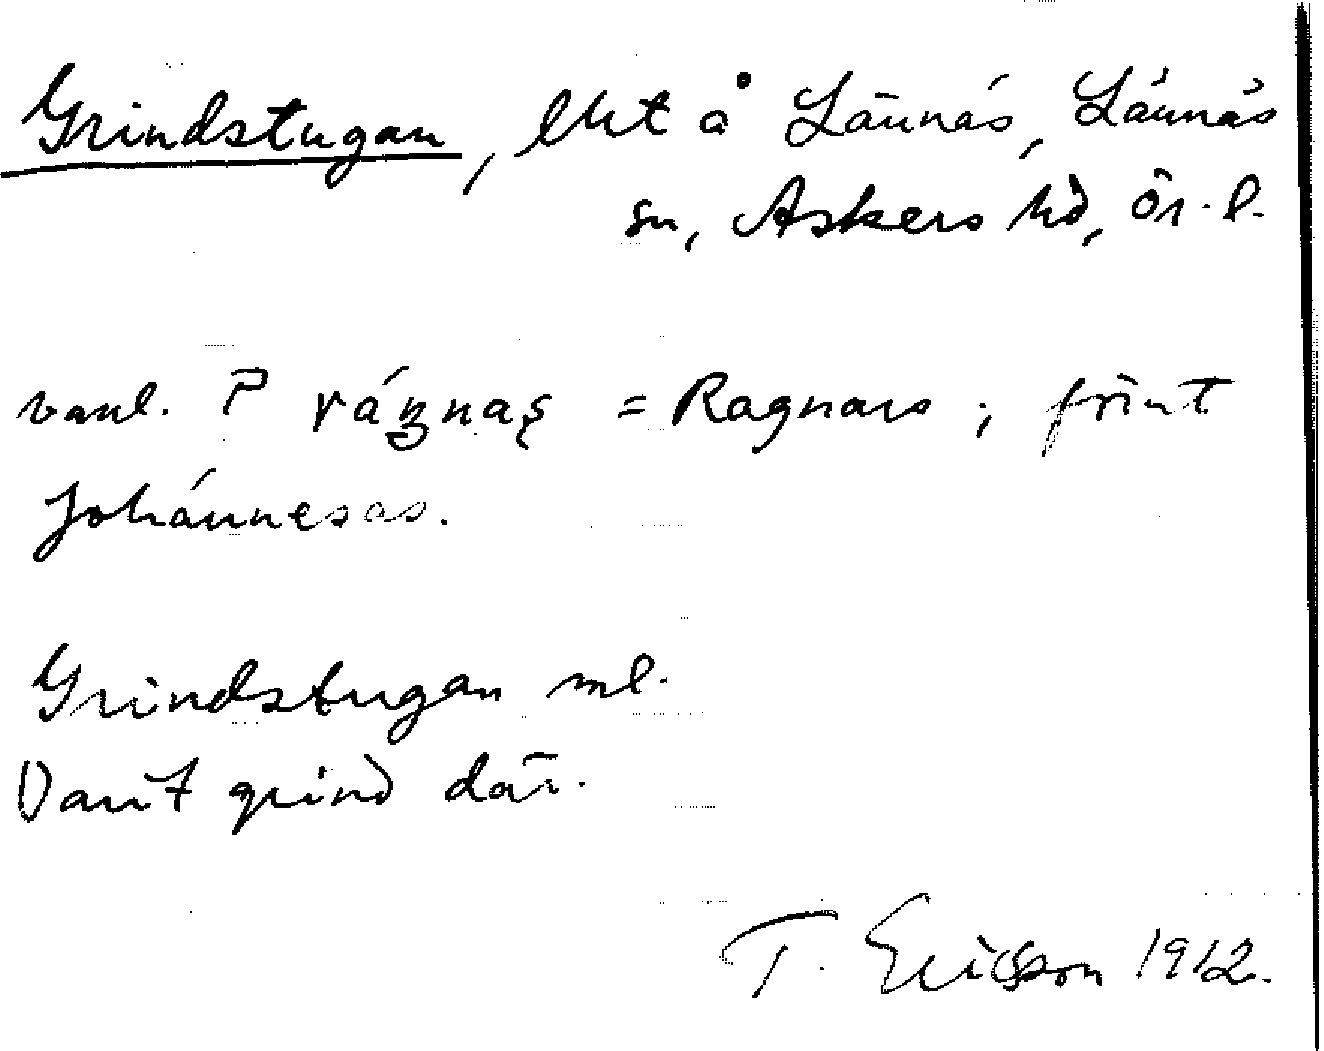 Grindstugan, lht å Lännäs, Lännäs
sn, Askers hd, Ör. l.
vanl. P rágnaș = Ragnars; förut
Johánnesas.
Grindstugan ml.
Varit grind där.
T. Ericson 1912.